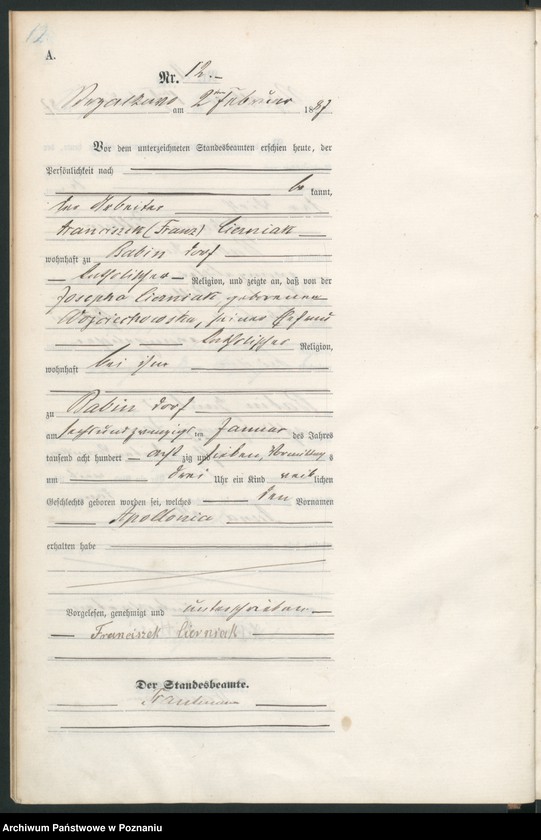 12.
A.
Nr. 12.
am 2ten Februar 1887
Vor dem unterzeichneten Standesbeamten erschien heute, der
Persönlichkeit nach
be kannt,
der Arbeiter
Franciszek (Franz) Cierniak
wohnhaft zu Babin Dorf
katholischer Religion, und zeigte an, daß von der
Josepha Cierniak, geborenen
Wojciechowska, seiner Ehefrau
katholischer Religion,
wohnhaft bei ihm
zu Babin Dorf
am sechsundzwanzigsten Januar des Jahres
tausend acht hundert achtzig und sieben, Vormittags
um drei Uhr ein Kind weiblichen
Geschlechts geboren worden sei, welches den Vornamen
Apollonia
erhalten habe
Vorgelesen, genehmigt und unterschrieben
Franciszek Cierniak
Der Standesbeamte.
Archiwum Państwowe w Poznaniu